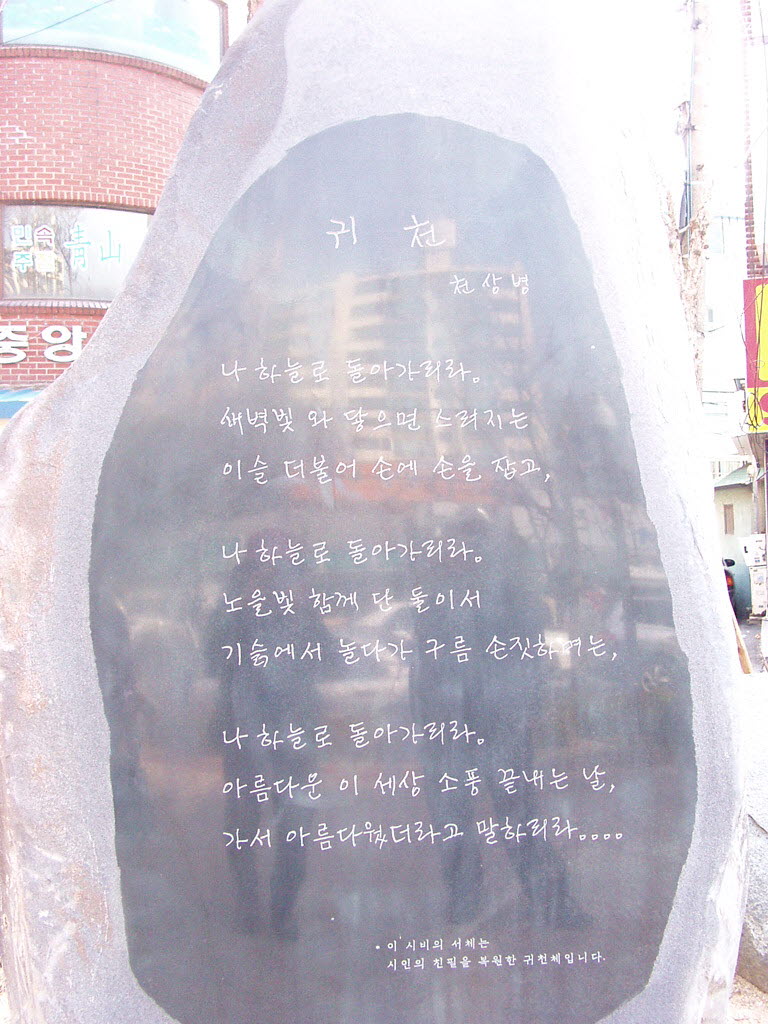 귀 천
천상병
나 하늘로 돌아가리라。
새벽빛 와 닿으면 스러지는
이슬 더불어 손에 손을 잡고,
나 하늘로 돌아가리라。
노을빛 함께 단 둘이서
기슭에서 놀다가 구름 손짓하며는,
나 하늘로 돌아가리라。
아름다운 이 세상 소풍 끝내는 날,
가서 아름다웠더라고 말하리라。。。。
* 이 시비의 서체는
시인의 친필을 복원한 귀천체입니다.
민속
주
靑山
중앙